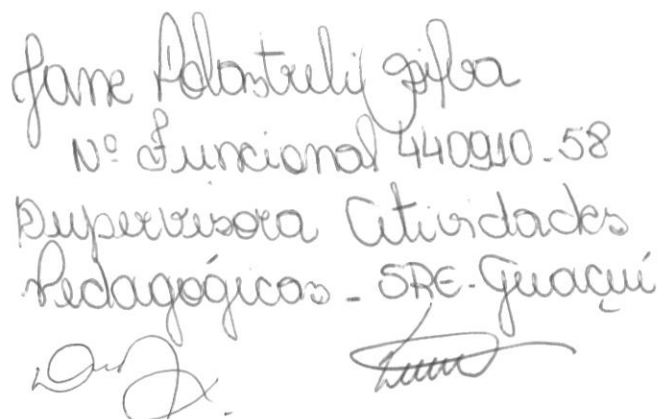 Jane Polastreli Silva
Nº Funcional 440910-58
Supervisora Atividades
Pedagógicas - SRE - Guaçuí